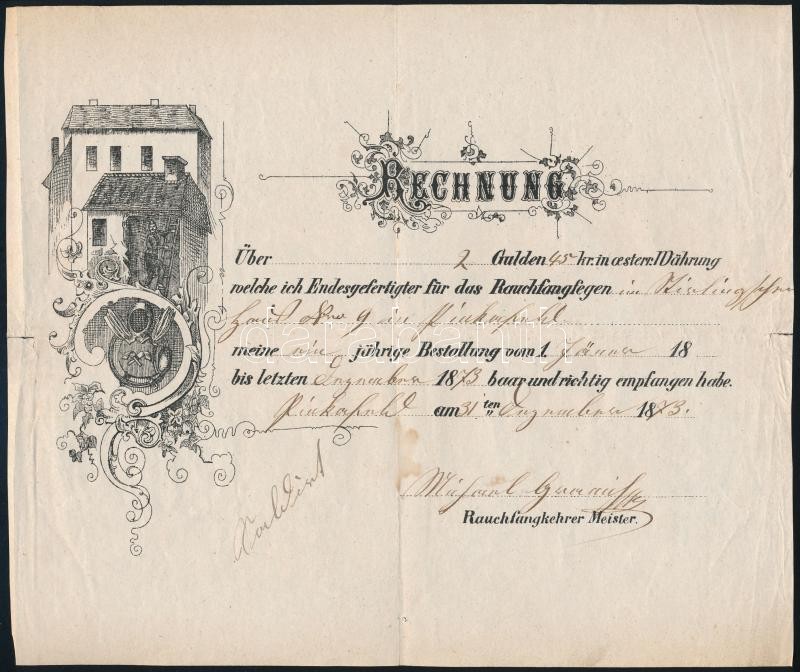 RECHNUNG
Über 2 Gulden 45 kr. in oesterr. Währung
welche ich Endesgefertigter für das Rauchfangfegen im
Haus Nro 9 in Pinkafeld
meine ein jährige Bestallung vom 1 Jäner 18
bis letzten Dezember 1873 baar und richtig empfangen habe.
Pinkafeld am 31 ten Dezember 1873.
Michael
Rauchfangkehrer Meister.
Saldirt